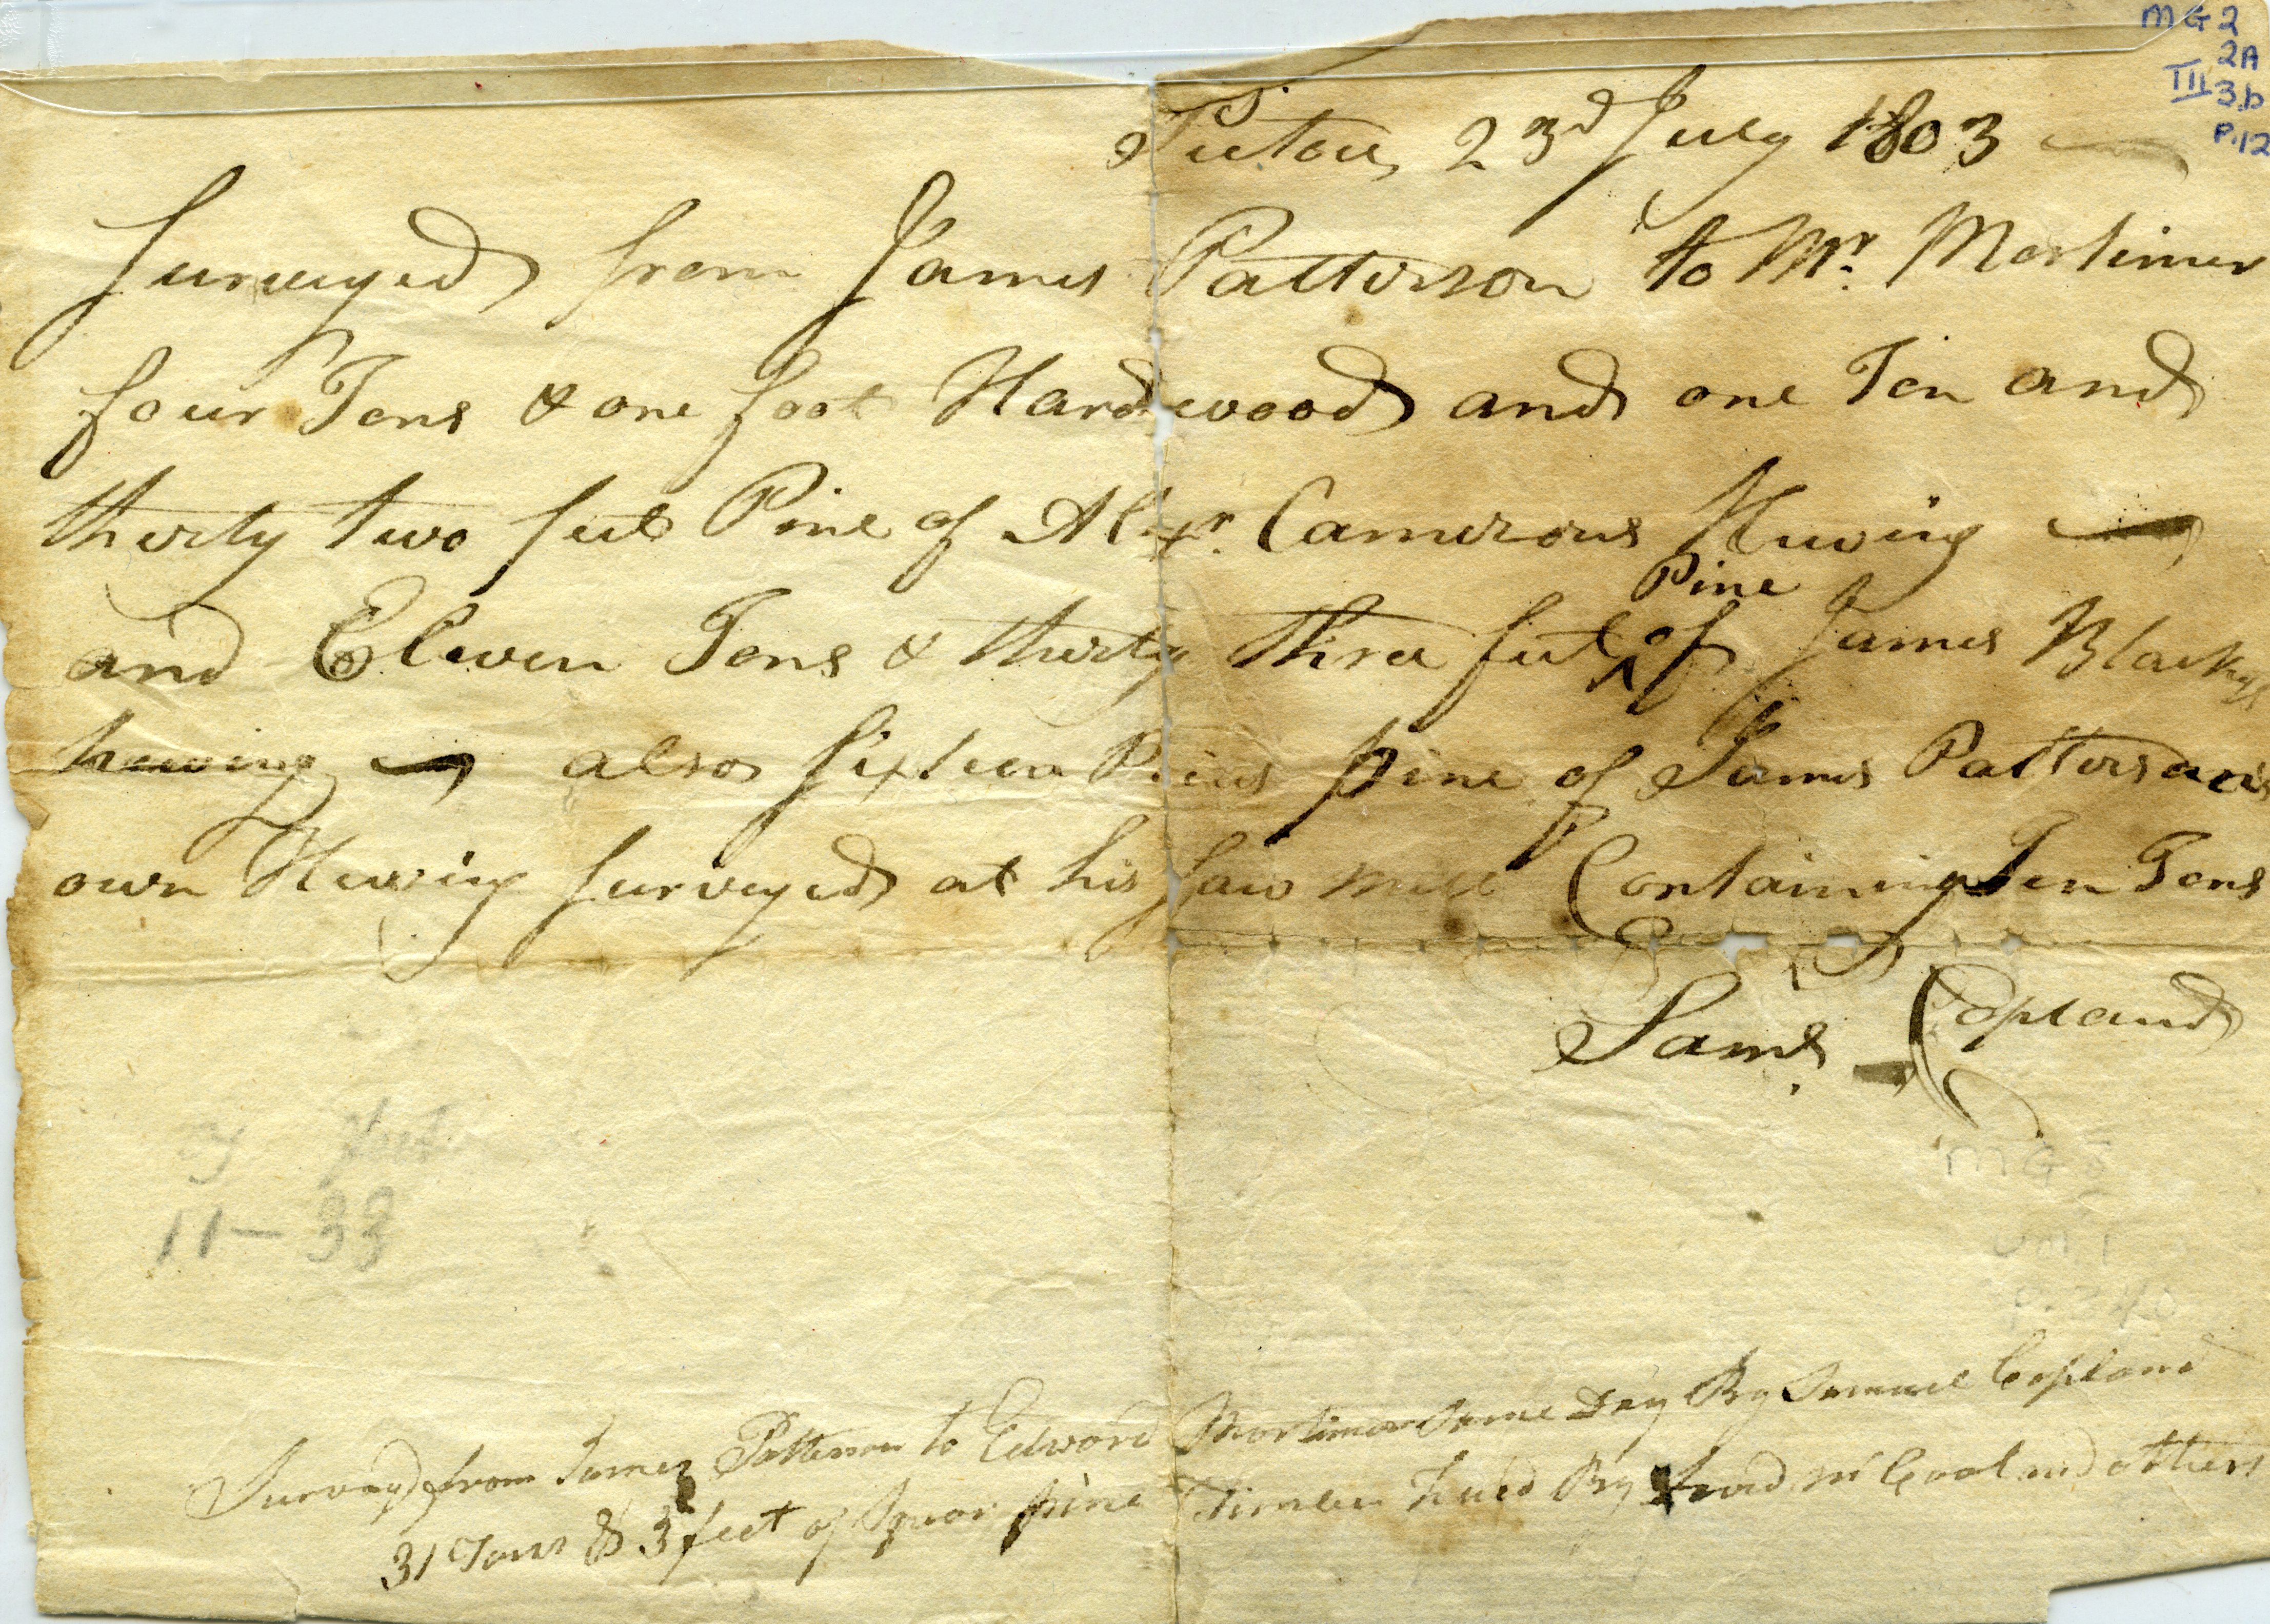 MG2
2A
III 3.b
P.12
Pictou 23d July 1803
Surveyed from James Patterson to Mr. Mortimer
four Tons & one foot Hardwood and one Ton and
thirty two feet Pine of Alexr. Camerons Hewing
and Eleven Tons & thirty three feet Pine of James Blackys
hewing also Sixteen Pieces pine of James Pattersons
own Hewing surveyed at his saw mill Containing Ten Tons
Saml. Copland
11 - 33
MG
Vol 1
Survayd from James Patterson to Edword Mortimer Same Day By Samuel Copland
31 Tons & 3 feet of Squar pine Timber hued By and others